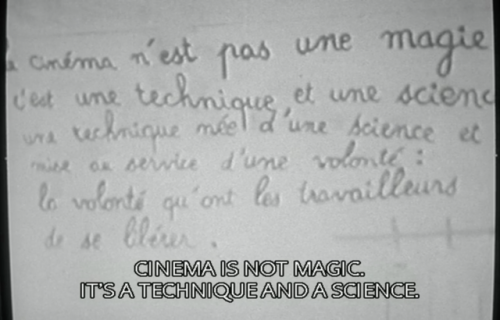 cinéma n'est pas une magie
c'est une technique et une scienc
une technique née d'une science et
mise au service d'une volonté :
la volonté qu'ont les travailleurs
de se libérer.
CINEMA IS NOT MAGIC.
IT'S A TECHNIQUE AND A SCIENCE.